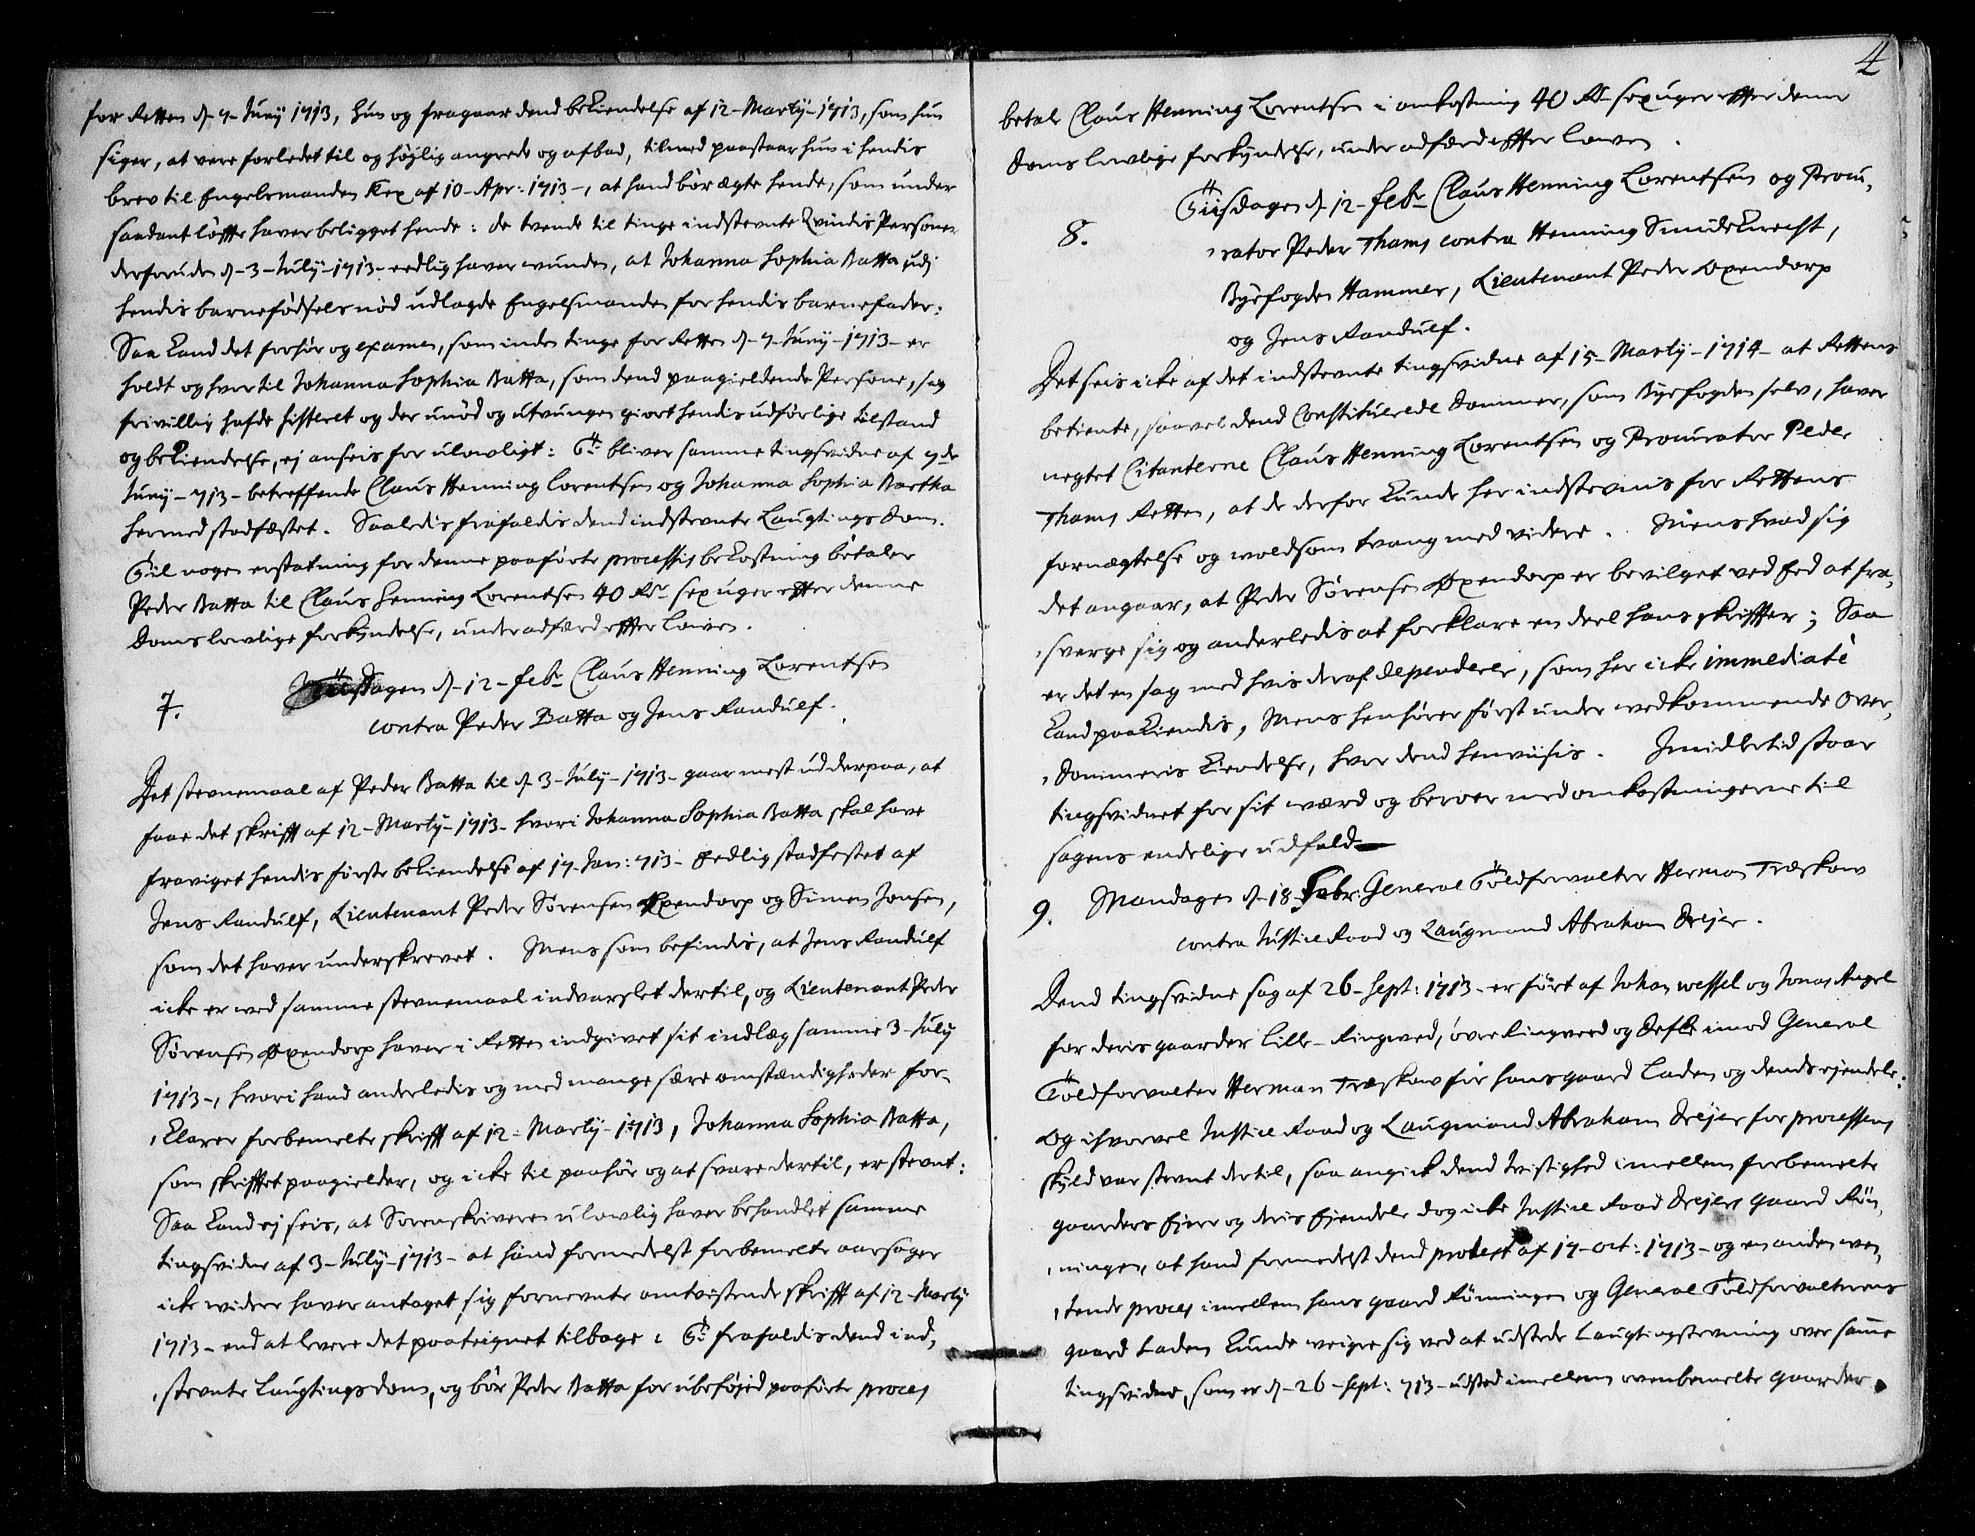 for Retten d. 7. Junij 1713, hun og fragaar dend bekiendelse af 12 Martij 1713, som hun
siger, at vere forledet til og höÿlig angrede og afbad, tilmed paastaar hun i hendis
brev til Engelsmanden Kex af 10 Apr: 1713, at hand bör ægte hende, som under
saadant löffte haver beligget hende: de tvende til tinge indstevnte Qvindis Personer
derforuden d. 3 Julÿ 1713 eedlig haver wunden, at Johanna Sophia Batta udj
hendis barnefödsels nöd udlagde Engelsmanden for hendis barnefader:
Saa kand det forhör og examen, som inden tinge for Retten d. 7 Junÿ 1713 er
holdt og hvortil Johanna Sophia Batta, som dend paagieldende Persone, sag
frivillig hafde sisteret og der unöd og utvungen giort hendis udförlige tilstand
og bekiendelse, ej ansees for ulowligt: Ti bliver samme tingsvidne af 7de
Junÿ 713 betreffende Claus Henning Lorentsen og Johanna Sophia Bartha
hermed stadfæstet. Saaledis frafaldis dend indstevnte Laugtings dom.
Til nogen erstatning for denne paaförte processis bekostning betaler
Peder Batta til Claus Henning Lorentsen 40 Rdr sex uger efter denne
doms lowlige forkÿndelse, under adfærd effter lowen.
7. Tiisdagen d. 12 Febr Claus Henning Lorentsen
contra Peder Batta og Jens Randulf.
Det stevnemaal af Peder Batta til d. 3 Julÿ 1713 gaar mest ud derpaa, at
faae det skrifft af 12 Martÿ 1713 hvori Johanna Sophia Batta skal have
fraviget hendis förste bekiendelse af 17 Jan: 713 Eedlig stadfestet af
Jens Randulf, Lieutenant Peder Sörensen Oxendorp og Simen Jonsen,
som det haver underskrevet. Mens som befindis, at Jens Randulf
icke er ved samme stevnemaal indvarslet dertil, og Lieutenant Peder
Sörensen Oxendorp haver i Retten indgivet sit indlæg samme 3 Julÿ
1713, hvori hand anderledis og med mange sære omstændigheder for-
klarer forbemelte skrifft af 12 Martÿ 1713, Johanna Sophia Batta,
som skrifftet paagielder, og icke til paahör og at svare dertil, er stevnt:
Saa kand ej seis, at Sorenskriveren ulowlig haver behandlet samme
tingsvidne af 3 Julÿ 1713 at hand formedelst forbemelte aarsager
icke widere haver antaget sig fornevnte omtvistende skrifft af 12 Martÿ
1713 end at levere det paateignet tilbage: Ti frafaldis dend ind-
stevnte Laugtings dom, og bör Peder Batta for ubeföjed paaförte proces
4
betale Claus Henning Lorentsen i omkostning 40 Rdr sex uger effter denne
doms lowlige forkÿndelse, under adfærd effter lowen.
8. Tiisdagen d. 12 Febr Claus Henning Lorentsen og Procu-
rator Peder Thams contra Henning Smideknecht,
Byefogden Hammer, Lieutenant Peder Oxendorp
og Jens Randulf.
Det seis icke af det indstevnte tingsvidne af 15 Martÿ 1714 at Rettens
betiente, saavel dend Constituerede dommer, som Byefogden selv, haver
negtet Citanterne Claus Henning Lorentsen og Procurator Peder
Thams Retten, at de derfor kunde her indstevnis for Rettens
fornægtelse og woldsom tvang med videre. Mens hvad sig
det angaar, at Peder Sörensen Oxendorp er bevilget ved Eed at fra-
sverge sig og anderledis at forklare en deel hans skriffter; Saa
er det en sag med hvis deraf dependerer, som her icke immediatè
kand paakiendis, Mens henhörer först under wedkommende Over-
dommeris kiendelse, hvor dend henviisis. Imidlertid staar
tingsvidnet for sit wærd og beroer med omkostningerne til
sagens endelige udfald
9. Mandagen d. 18 Febr. General Toldforvalter Herman Treskow
contra Justice Raad og Laugmand Abraham Dreyer.
Dend tingsvidne sag af 26 Sept: 1713 er fört af Johan Wessel og Jonas Angel
for deris gaarder Lille Ringved, över Ringveed og Defle imod General
Toldforvalter Herman Træskow for hans gaard Laden og dends ejendele:
Og ihvorvel Justice Raad og Laugmand Abraham Dreÿer for processens
skÿld var stevnt dertil, saa angick dend tvistighed imellem forbemelte
gaarders Ejere og deris Ejendele dog icke Justice Raad Dreÿers gaard Rön-
ningen, at hand formedelst dend protest af 17 oct: 1713 og en anden wen-
tende proces imellem hans gaard Rönningen og General Toldforvalterens
gaard Laden kunde weigre sig ved at udstede Laugtingstevning over same
tingsvidne, som er d. 26 Sept: 713 udsted imellem ovenbemelte gaarder